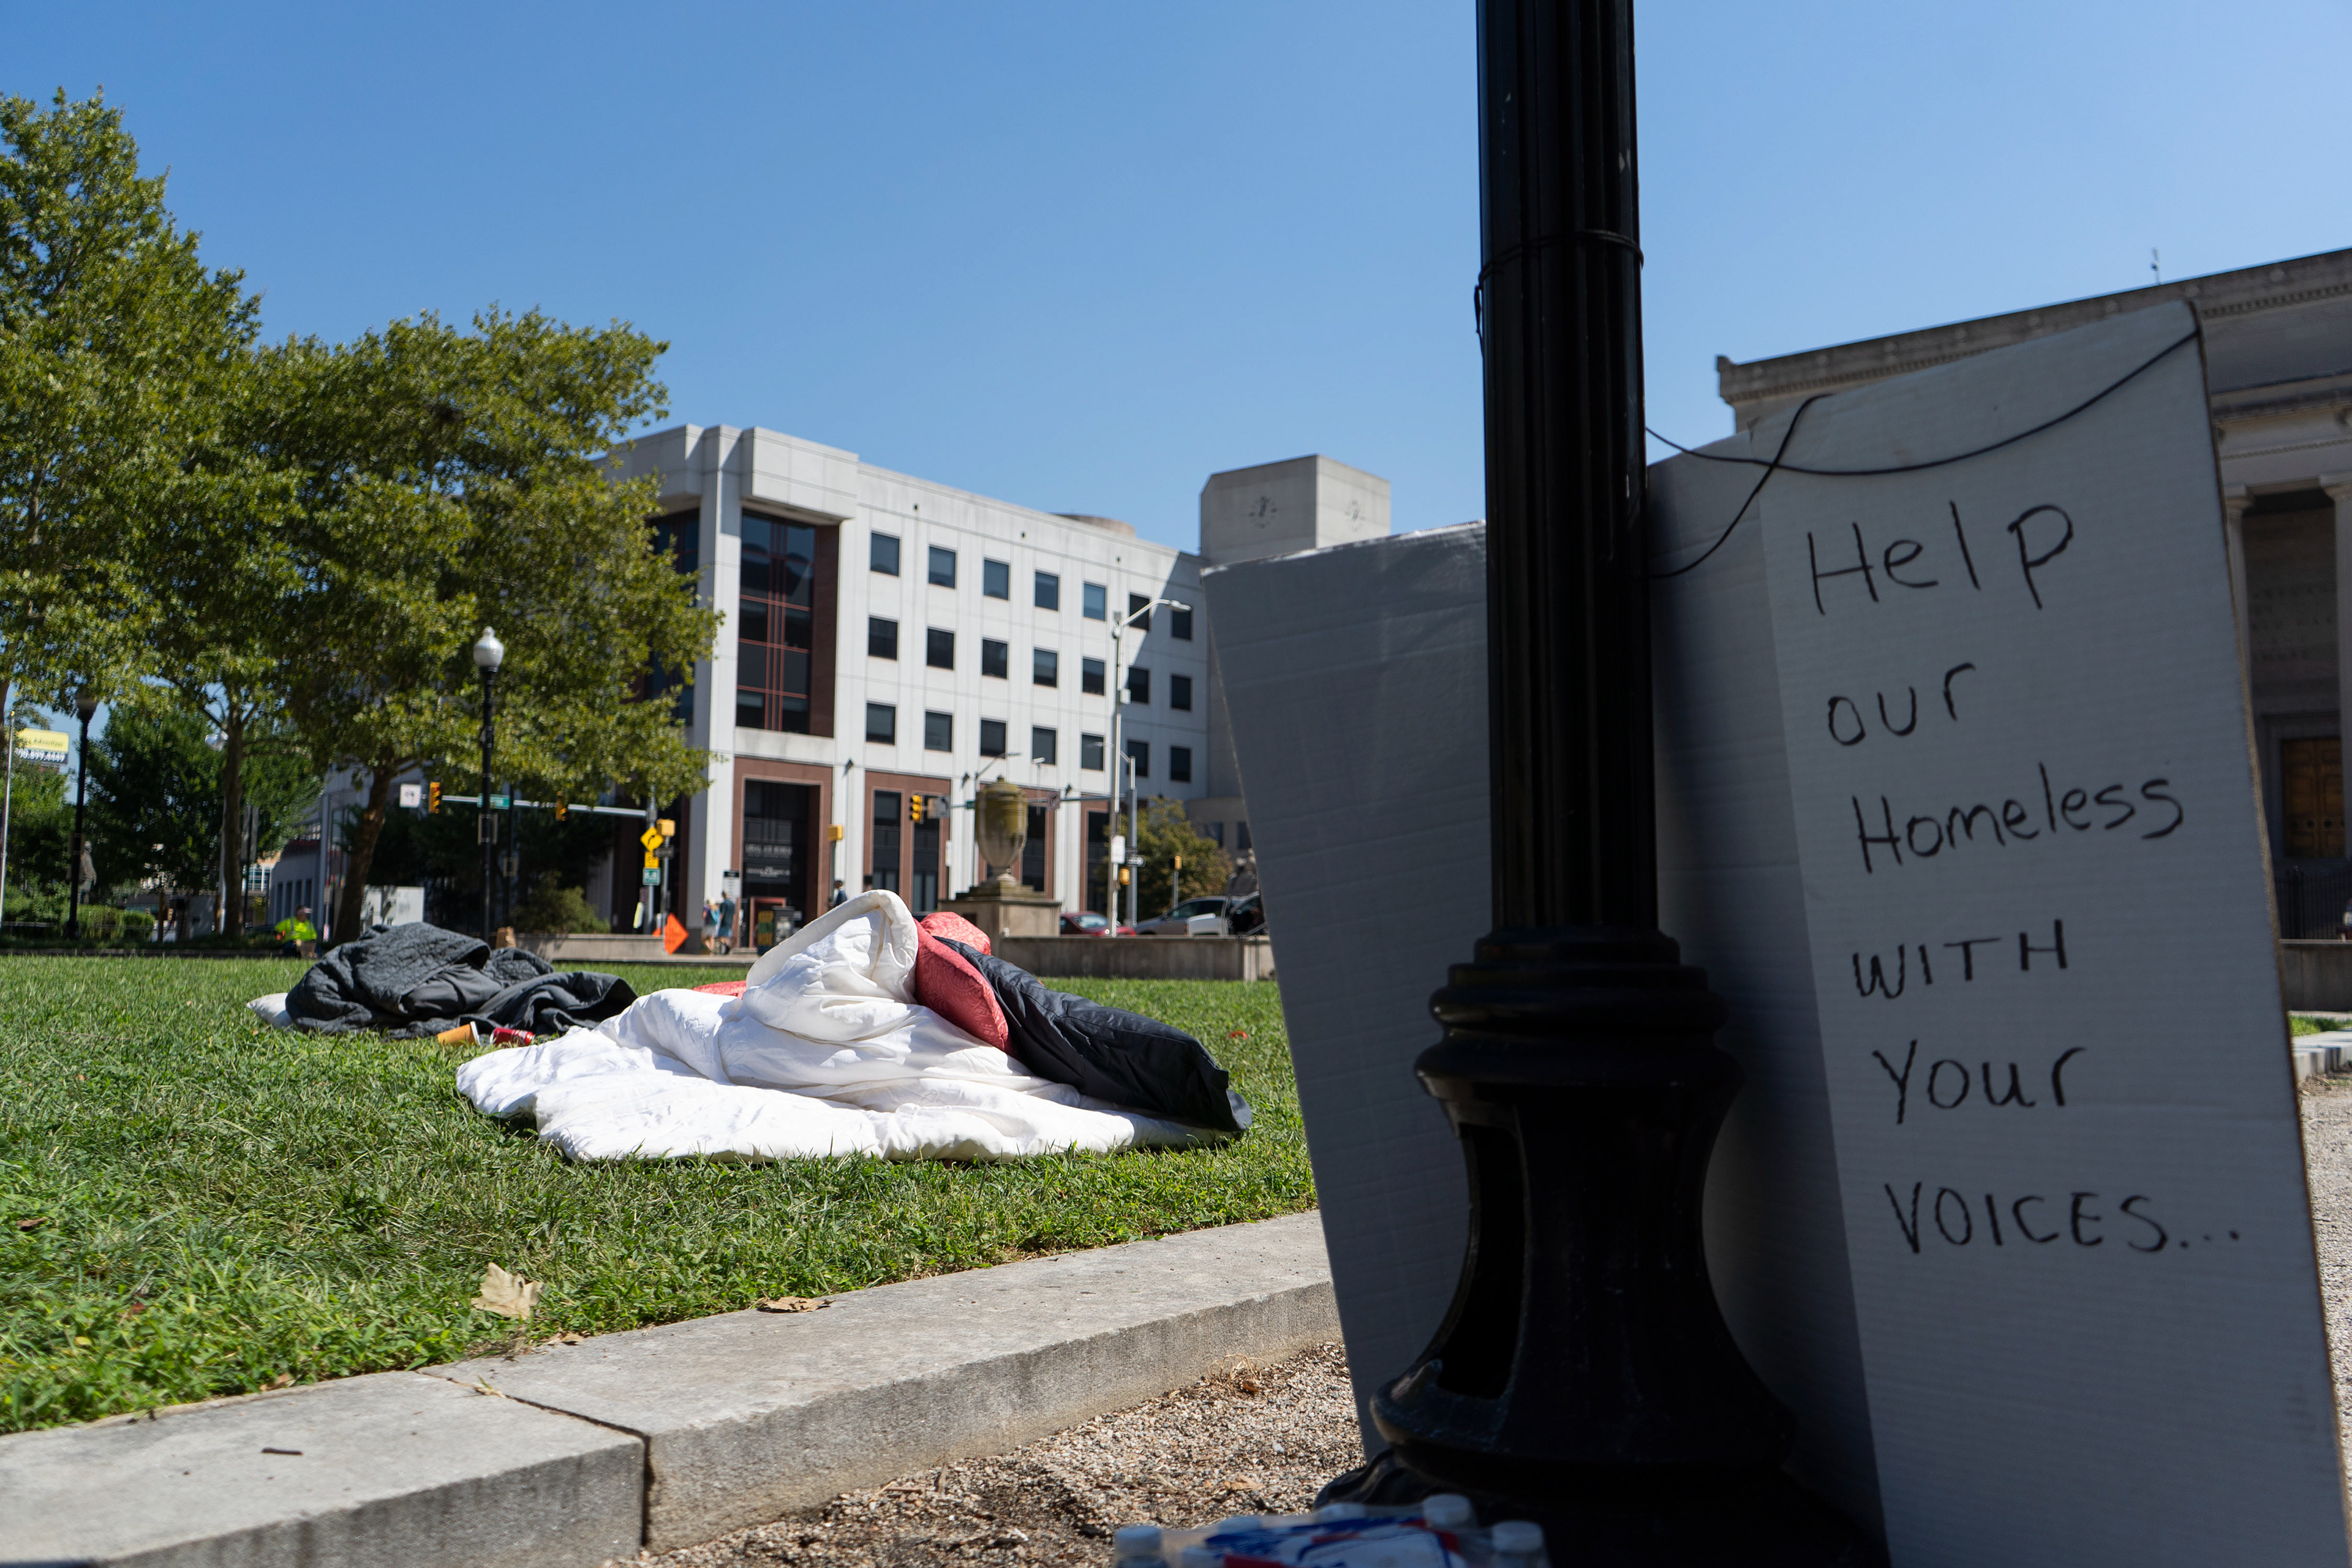 Help
our
Homeless
WITH
Your
VOICES...